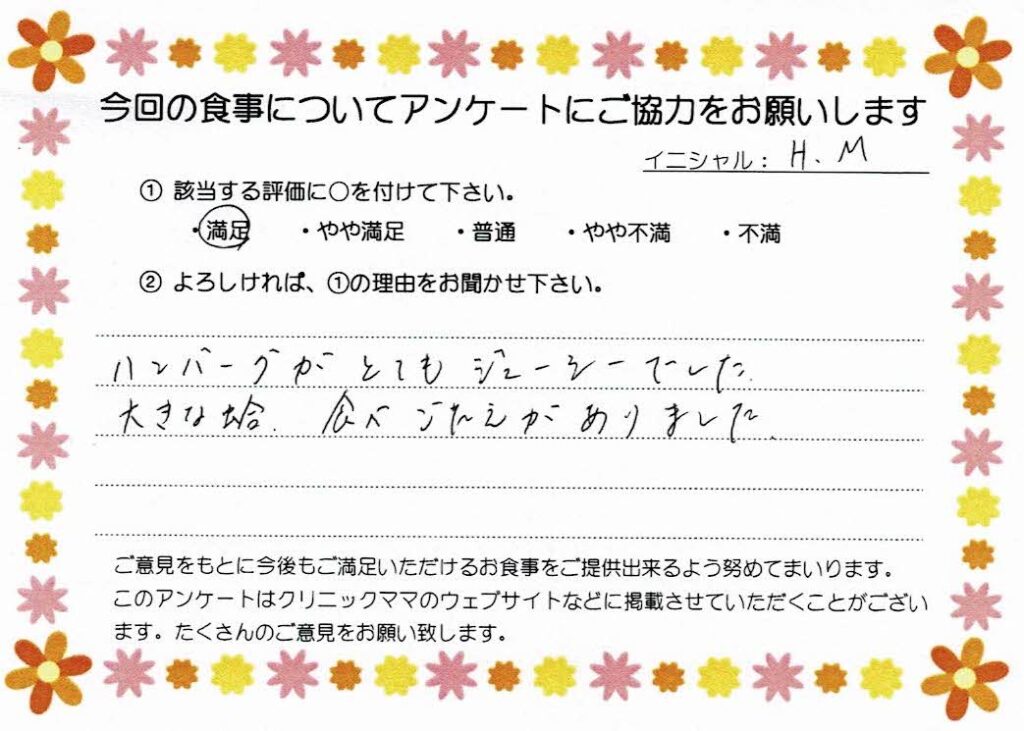 今回の食事についてアンケートにご協力をお願いします
イニシャル： H. M
① 該当する評価に○を付けて下さい。
・満足 ・やや満足 ・普通 ・やや不満 ・不満
② よろしければ、①の理由をお聞かせ下さい。
ハンバーグがとてもジューシーでした.
大きな蛤. 食べごたえがありました.
ご意見をもとに今後もご満足いただけるお食事をご提供出来るよう努めてまいります。
このアンケートはクリニックママのウェブサイトなどに掲載させていただくことがござい
ます。たくさんのご意見をお願い致します。